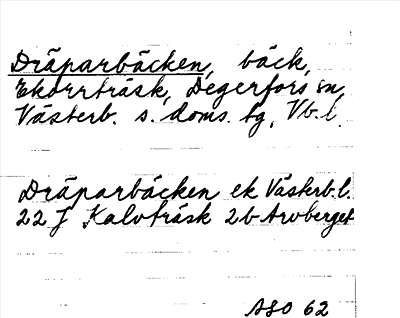 Dräparbäcken, bäck,
Ekorrträsk, Degerfors sn,
Västerb. s. doms. tg, Vb.l.
Dräparbäcken ek Västerb.l.
22 J Kalvträsk 2b Arvberget
ASO 62